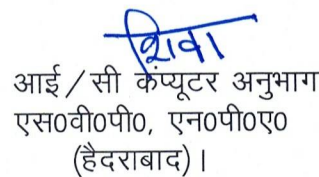 शिवा
आई/सी कंप्यूटर अनुभाग
एस0वी0पी0, एन0पी0ए0
(हैदराबाद)।